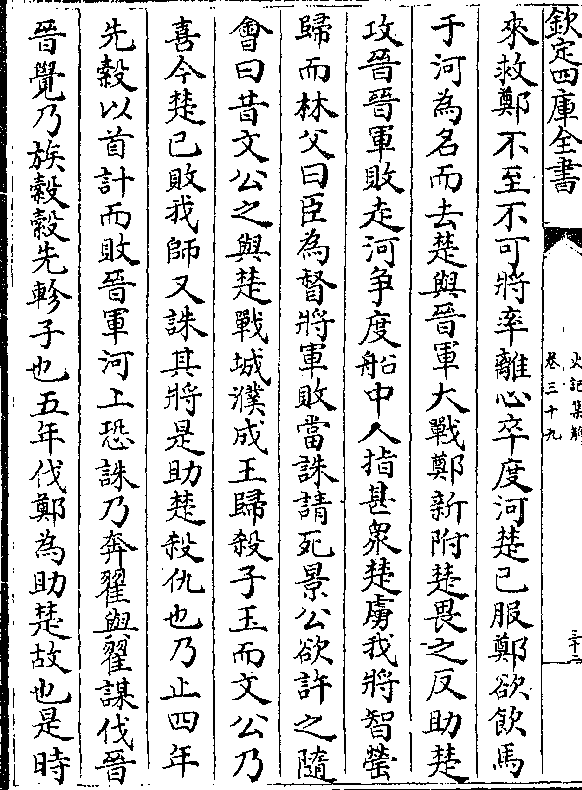 欽定四庫全書
史記集解
卷三十九
三十二
來救鄭不至不可將率離心卒度河楚已服鄭欲飲馬
于河為名而去楚與晉軍大戰鄭新附楚畏之反助楚
攻晉晉軍敗走河爭度船中人指甚衆楚虜我將智罃
歸而林父曰臣為督將軍敗當誅請死景公欲許之隨
會曰昔文公之與楚戰城濮成王歸殺子玉而文公乃
喜今楚已敗我師又誅其將是助楚殺仇也乃止四年
先縠以首計而敗晉軍河上恐誅乃奔翟與翟謀伐晉
晉覺乃族縠縠先軫子也五年伐鄭為助楚故也是時